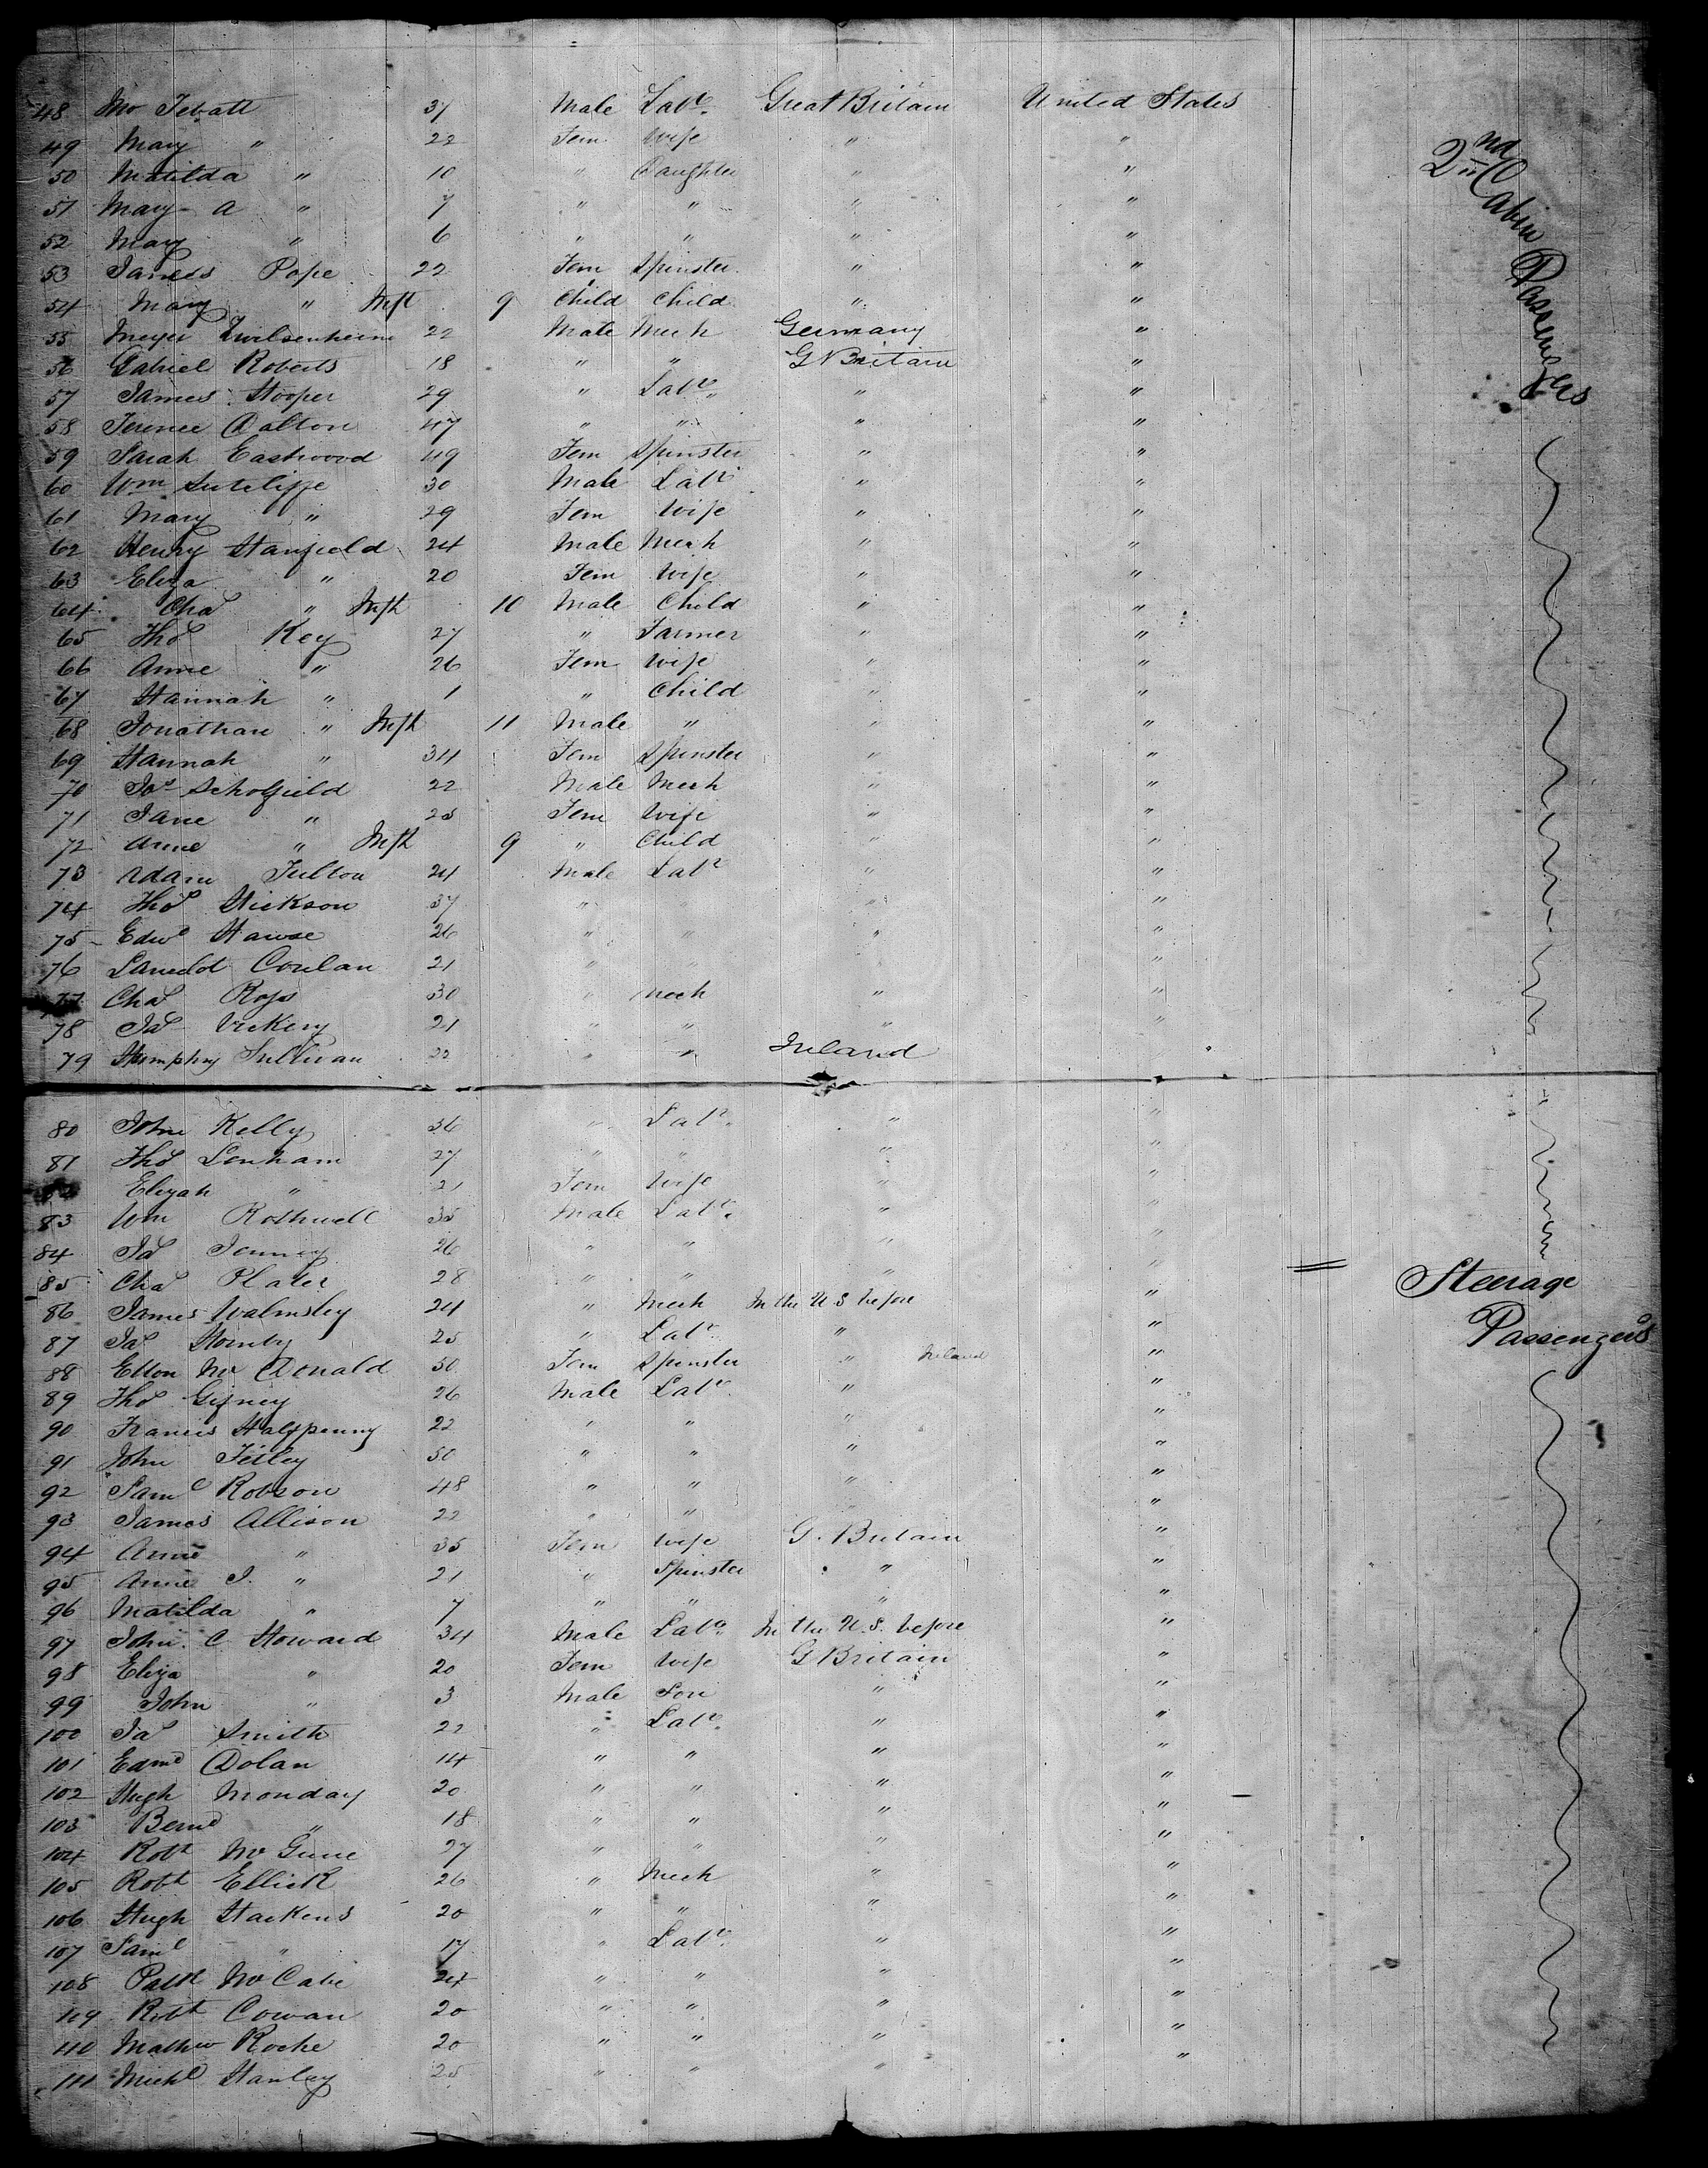 48 Mo Tebatt 37 Male Labr. Great Britain United States
49 Mary " 22 Fem wife " "
2nd Cabin Passengers
50 Matilda " 10 " Daughter " "
51 Mary A " 7 " " " "
52 Mary " 6 " " " "
53 Pope 22 Fem Spinster " "
54 Mary " Inft 9 Child Child " "
55 Meyer 22 Male Mech Germany "
56 Gabriel Roberts 18 " " G Britain "
57 James Hooper 29 " Labr. " "
58 Terence Dalton 47 " " " "
59 Sarah Eastwood 49 Fem Spinster " "
60 Wm Sutcliffe 30 Male Labr " "
61 Mary " 29 Fem Wife " "
62 Henry Stanfield 24 Male Mech " "
63 Eliza " 20 Fem Wife " "
64 Chas " Inft 10 Male Child " "
65 Thos Key 27 " Farmer " "
66 Anne " 26 Fem Wife " "
67 Hannah " 1 " Child " "
68 Jonathan " Inft 11 Male " " "
69 Hannah " 34 Fem Spinster " "
70 Jos Scholfield 22 Male Mech " "
71 Jane " 25 Fem Wife " "
72 Anne " Inft 9 " Child " "
73 Adam Fulton 24 Male Labr " "
74 Thos Hickson 37 " " "
75 Edwd 26 " " " "
76 Conlan 21 " "
77 Chas Ross 30 " Mech " "
78 Jas Vickery 21 " " " "
79 Humphry Sullivan 22 " " Ireland
80 John Kelly 36 " Labr. " "
81 Thos Lenham 27 " " " "
82 Elizah " 21 Fem Wife " "
83 Wm Rothwell 35 Male Labr. " "
84 Jas 26 " " " "
85 Chas Plater 28 " " " = Steerage
86 James Walmsley 24 " Mech In the U S before "
87 Jas Hornby 25 " Labr " " Passengers
88 Ellen Mc Donald 50 Fem Spinster " Ireland "
89 Thos Gifney 26 Male Labr. " "
90 Francis Halfpenny 22 " " " "
91 John 50 " " " "
92 Saml Robson 48 " " " "
93 James Allison 22 " " "
94 Anne " 35 Fem wife G. Britain "
95 Anne J. " 21 " Spinster " "
96 Matilda " 7 " " " "
97 John C Howard 34 Male Labr. In the U.S. before "
98 Eliza " 20 Fem wife G Britain "
99 John " 3 Male Son " "
100 Jas Smith 22 " Labr. " "
101 Edmd Dolan 14 " " " "
102 Hugh Monday 20 " " " "
103 Bernd " 18 " " " "
104 Robt 27 " " " "
105 Robt 26 " Mech " "
106 Hugh 20 " " " "
107 Saml " 17 " Labr. " "
108 Patk Mc Cabe 24 " " " "
109 Robt Cowan 20 " " " "
110 Mathew Roche 20 " " " "
111 Michl Hanley 25 " " " "